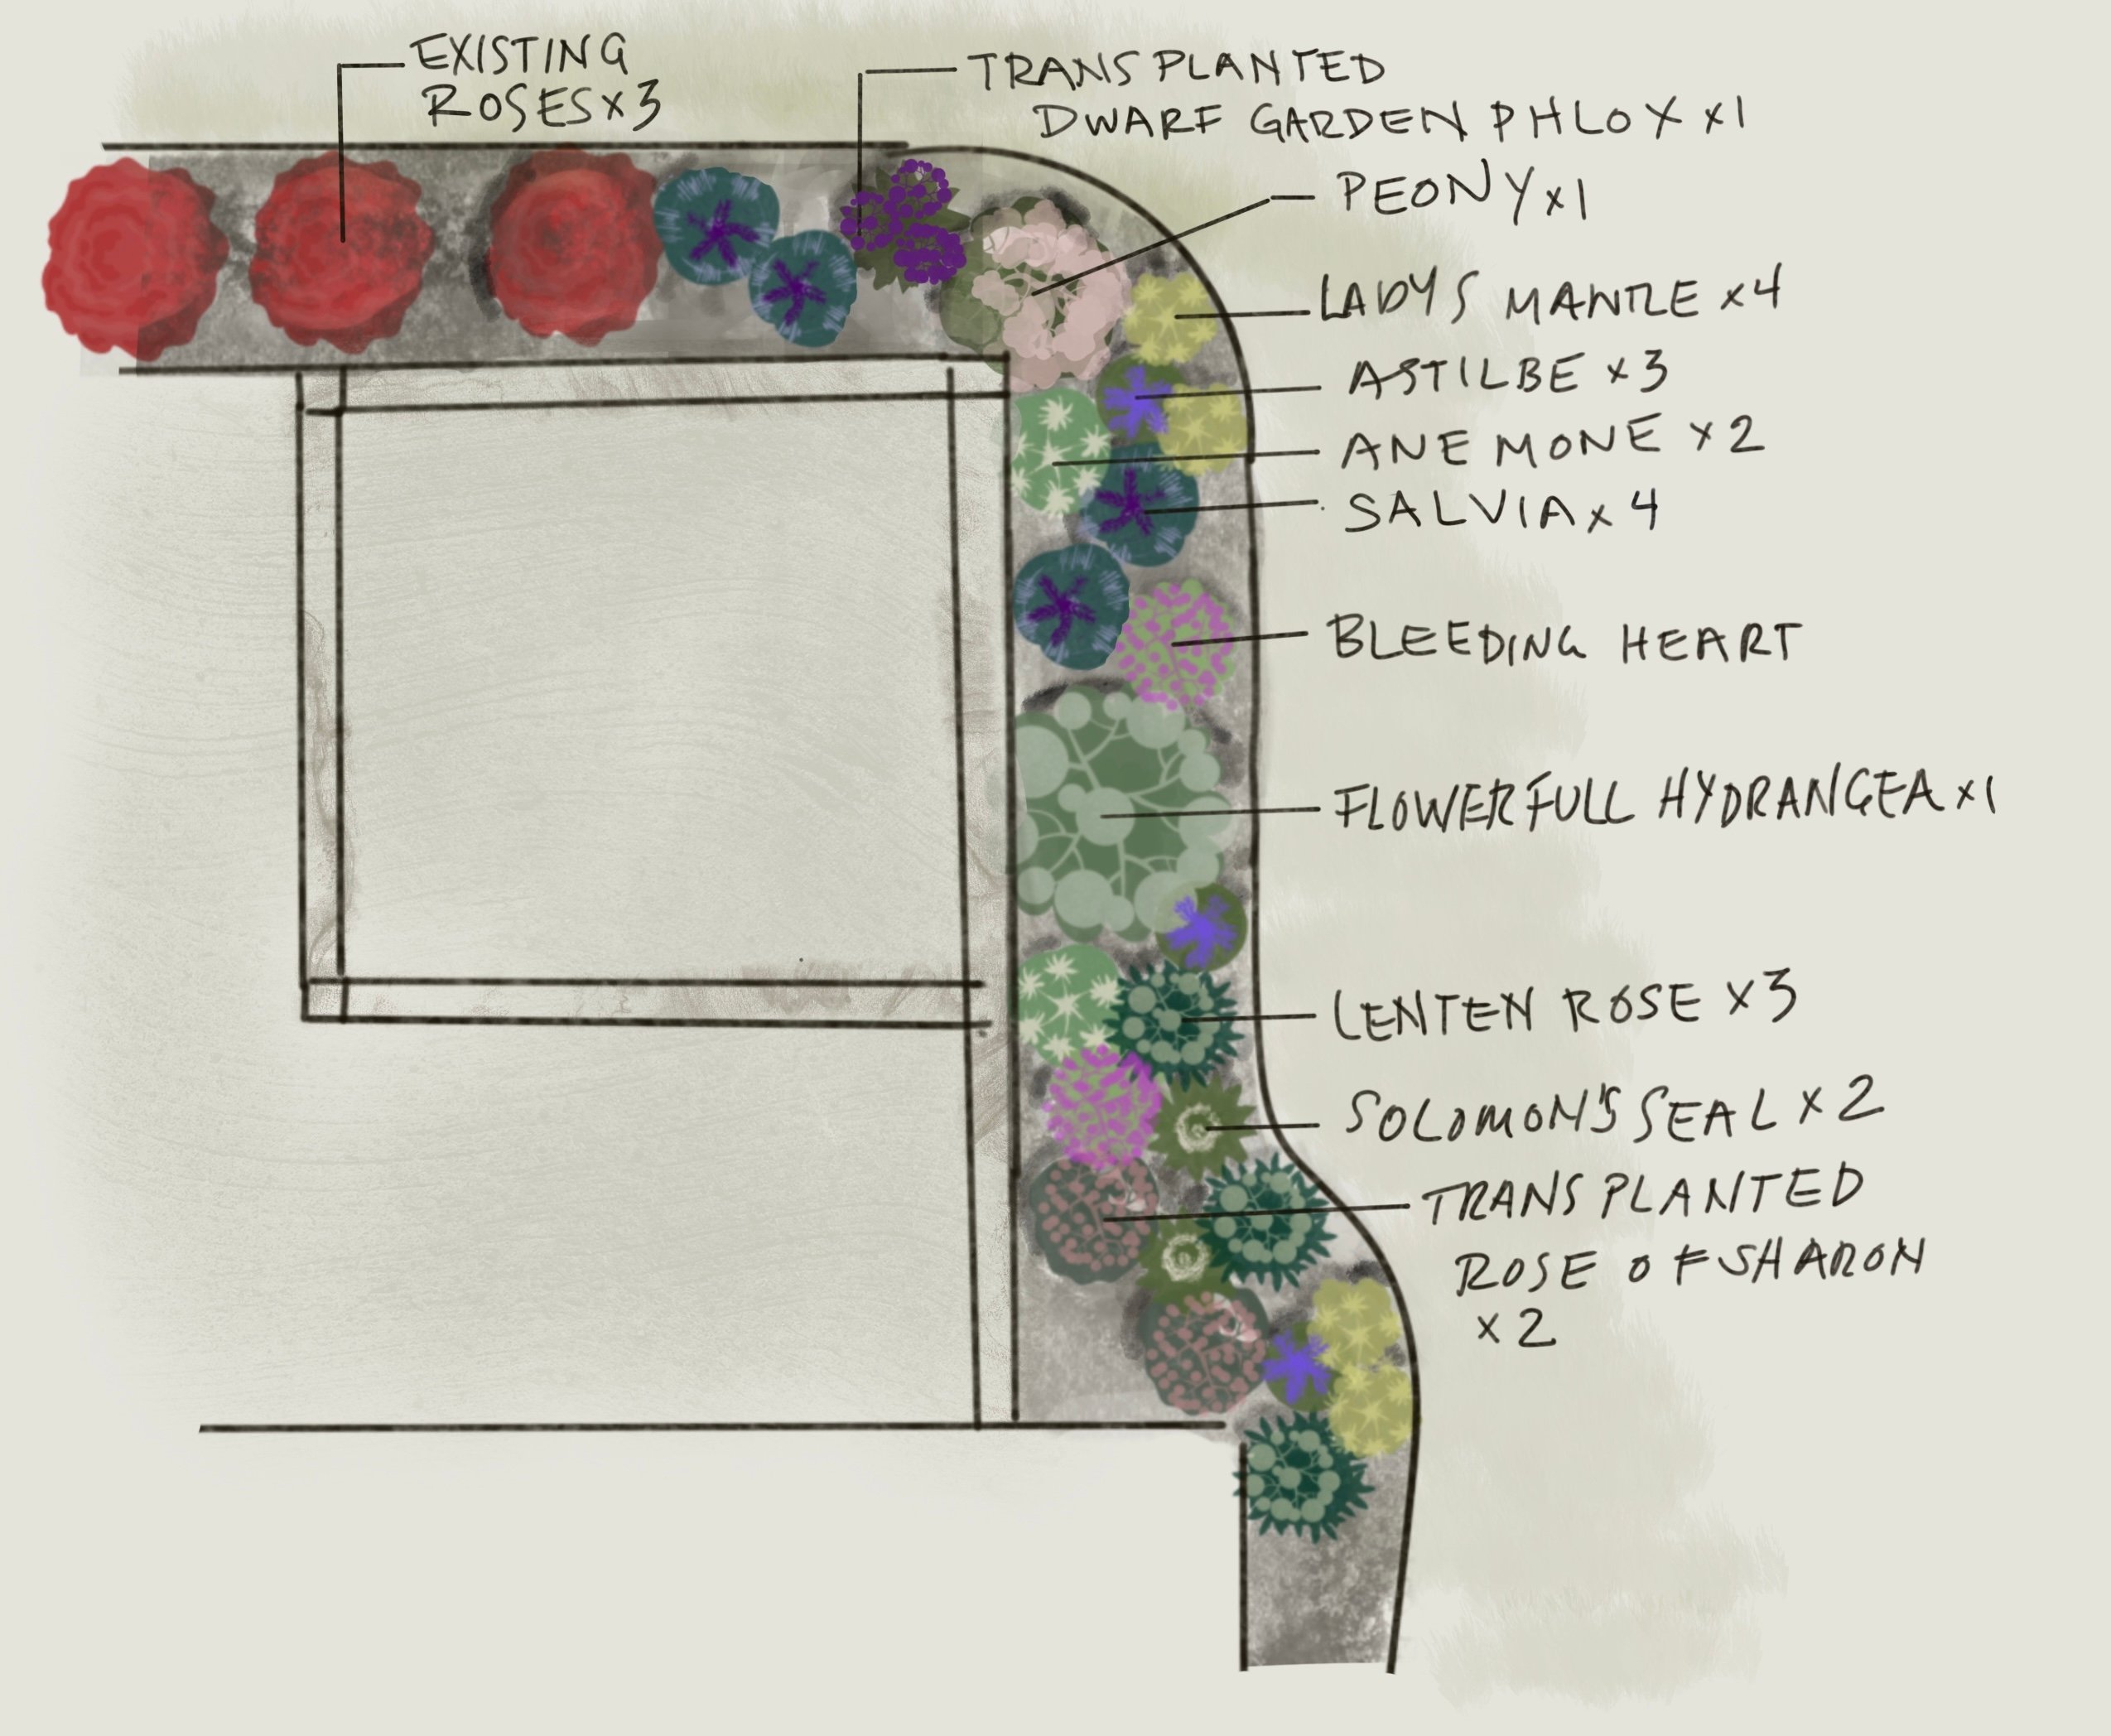 EXISTING
ROSES x 3
TRANSPLANTED
DWARF GARDEN PHLOX x1
PEONY x1
LADYS MANTLE x4
ASTILBE x3
ANEMONE x2
SALVIA x 4
BLEEDING HEART
FLOWERFULL HYDRANGEA x1
LENTEN ROSE x3
SOLOMON'S SEAL x 2
TRANSPLANTED
ROSE OF SHARON
x 2